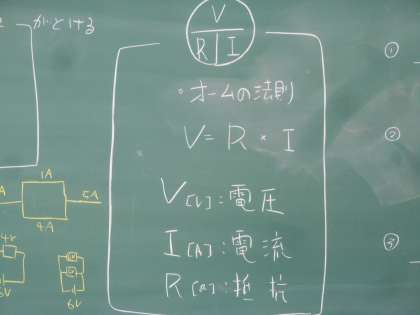 かといける
V
R | I
・オームの法則
V = R × I
V[V]:電圧
I[A]:電流
R[Ω]:抵抗
①
②
③
1A
A
5A
4A
6V